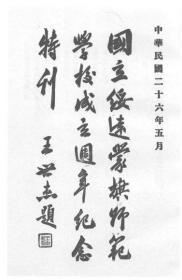 中華民國二十六年五月
國立綏遠蒙旗師範
學校成立週年紀念
特刊
王世杰題